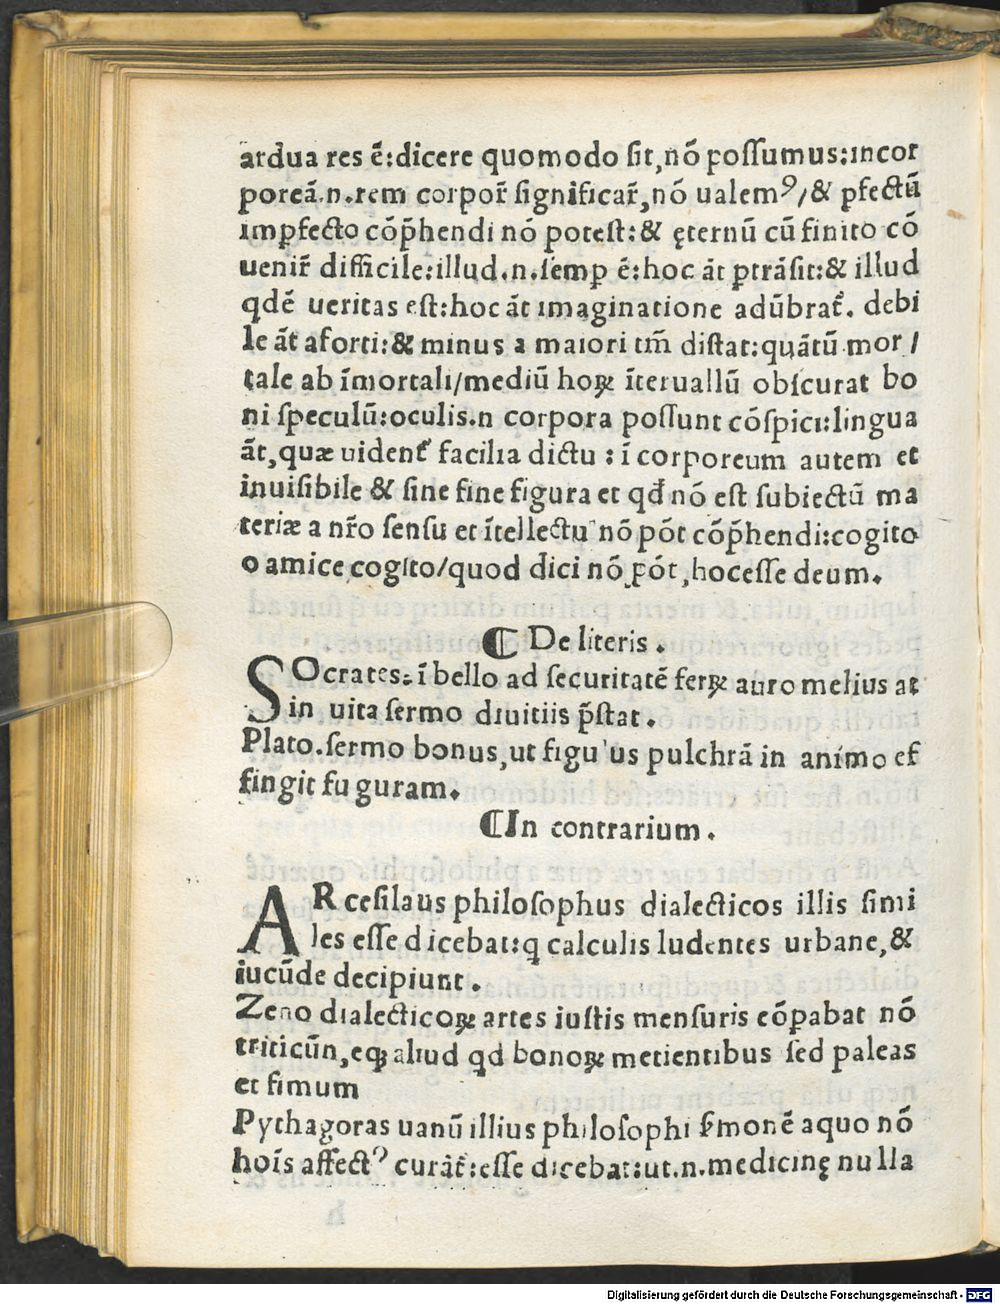 ardua res ē:dicere quomodo ſit,nō poſſumus:incor
poreā.n.rem corpor̄ ſignificar̄,nō ualemꝰ/& ꝓfectū
imꝑfecto cōp̄hendi nō poteſt:& ęternū cū finito cō
uenir̄ difficile:illud.n.ſemꝑ ē:hoc āt ꝑtrāſit:& illud
qdē ueritas eſt:hoc āt imaginatione adūbrat᷑. debi
le āt aforti:& minus a maiori tm̄ diſtat:quātū mor /
tale ab īmortali/mediū hoꝝ īteruallū obſcurat bo
ni ſpeculū:oculis.n corpora poſſunt cōſpici:lingua
āt,quæ uident᷑ facilia dictu : ī corporeum autem et
inuiſibile & ſine fine figura et qđ nō eſt ſubiectū ma
teriæ a nr̄o ſenſu et ītellectu nō pōt cōp̄hendi:cogito
o amice cogito/quod dici nō pōt,hoceſſe deum.
¶ De literis .
SOcrates:ī bello ad ſecuritatē ferꝝ auro melius at
in uita ſermo diuitiis p̄ſtat .
Plato.ſermo bonus,ut figu us pulchrā in animo ef
fingit fu guram.
¶In contrarium .
ARceſilaus philoſophus dialecticos illis ſimi
les eſſe dicebat:q calculis ludentes urbane,&
iucūde decipiunt .
Zeno dialecticoꝝ artes iuſtis menſuris cōpabat nō
triticūn,eqꝫ aliud qd bonoꝝ metientibus ſed paleas
et fimum
Pythagoras uanū illius philoſophi ſ̄monē aquo nō
hoīs affectꝰ curāt᷑:eſſe dicebat:ut.n.medicinę nulla
Digitalisierung gefördert durch die Deutsche Forschungsgemeinschaft - DFG